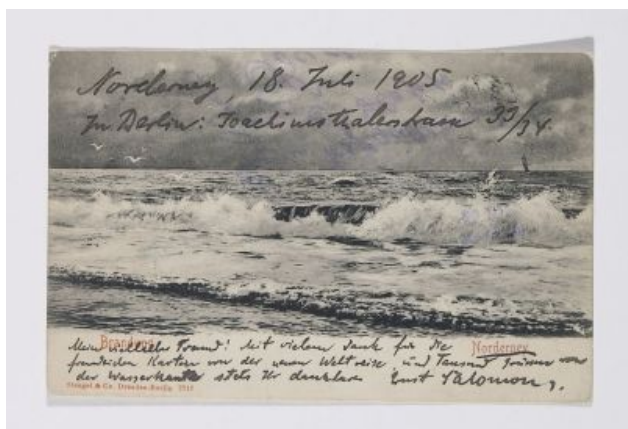 Norderney, 18. Juli 1905
In Berlin: Joachimsthalerstrasse 33/34.
Brandung
Norderney
Mein Freund! Mit vielem Dank für die
freundlichen Karten von der neuen Weltreise und Tausend Grüssen von
der Wasserkante stets Ihr dankbarer Ernst Salomon
Stengel & Co. Dresden-Berlin